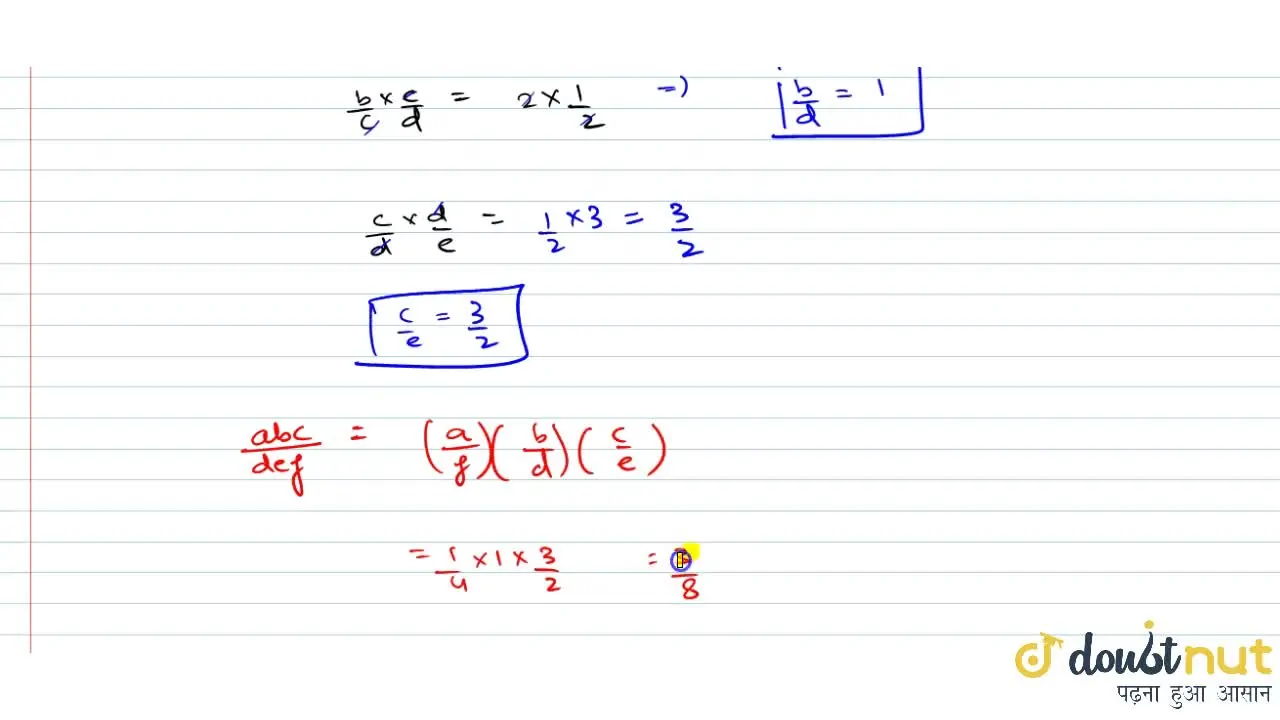 b/c × c/d = 2 × 1/2 => b/d = 1
c/d × d/e = 1/2 × 3 = 3/2
c/e = 3/2
abc/def = (a/f)(b/d)(c/e)
= 1/4 × 1 × 3/2 = 3/8
doubtnut
पढ़ना हुआ आसान